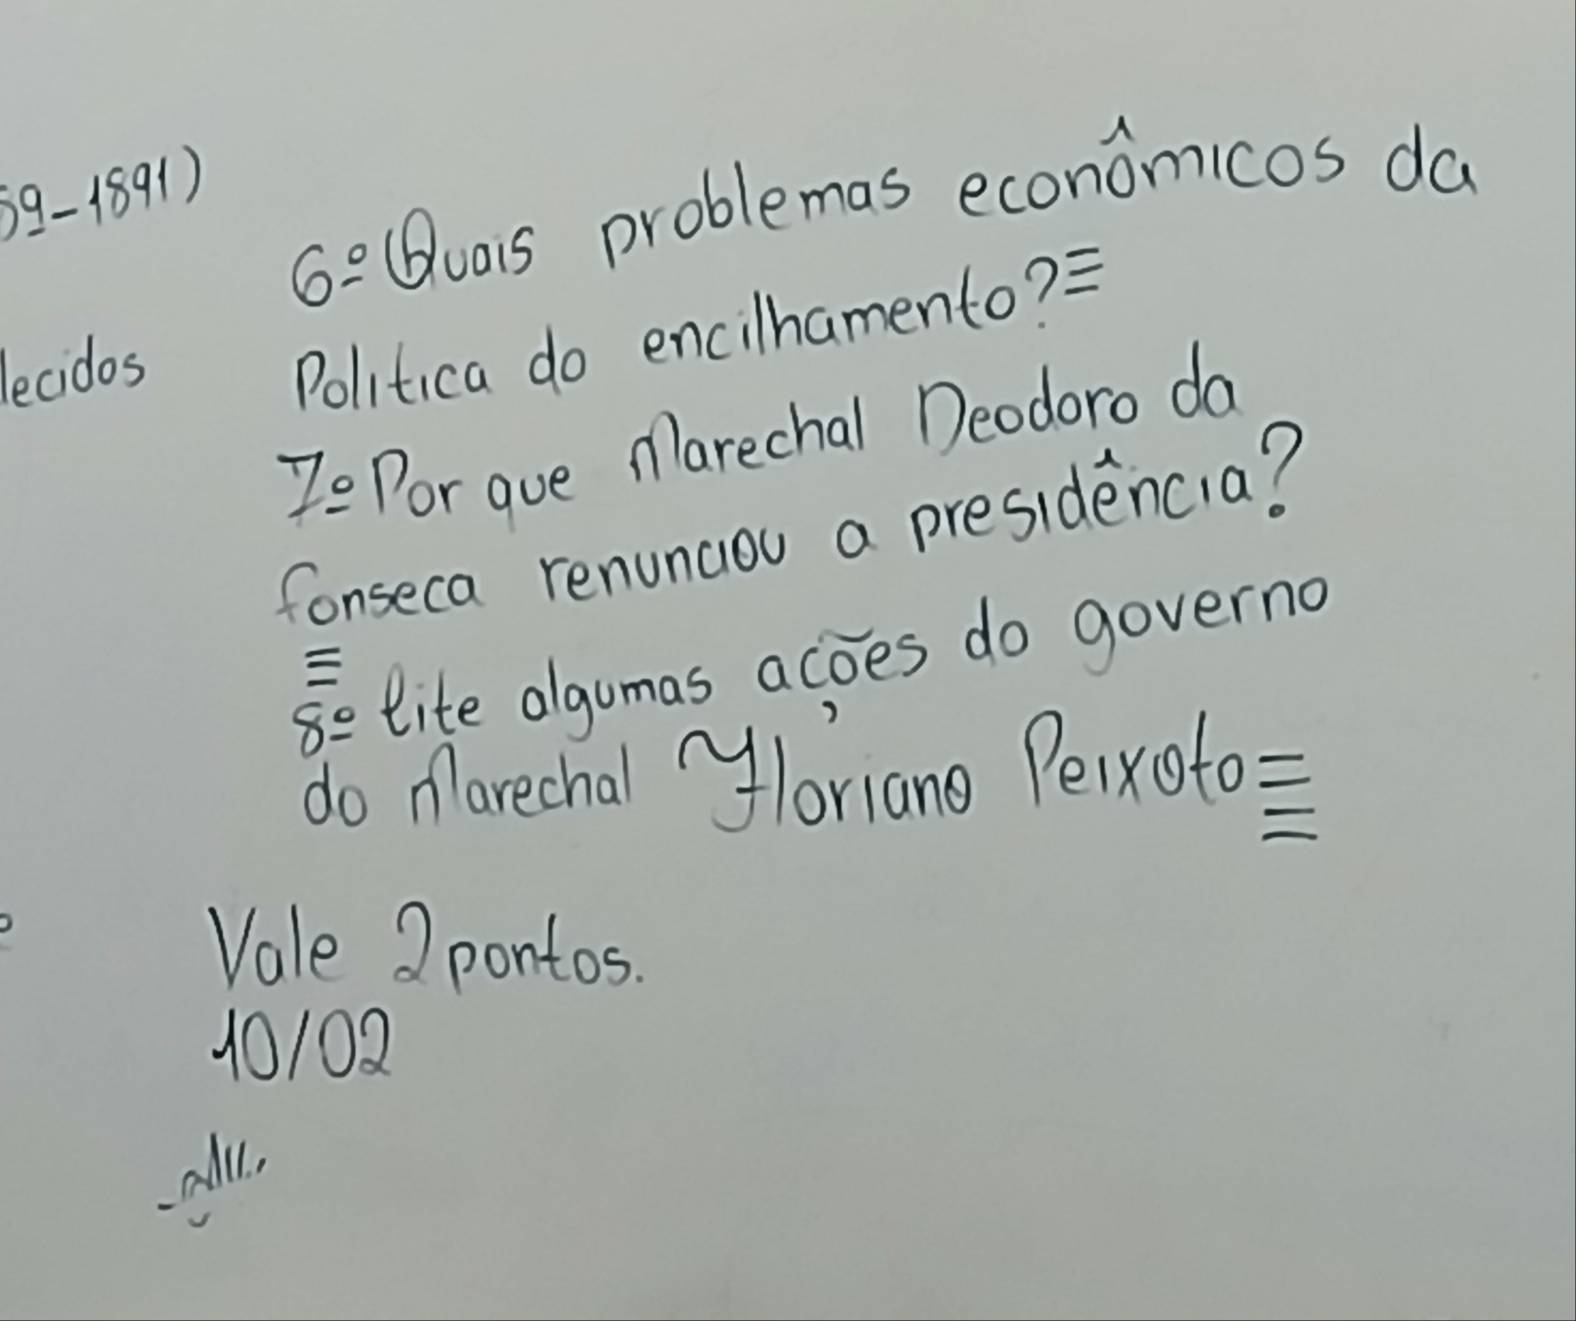 59-1891)
lecidos
6º Quais problemas econômicos da
Politica do encilhamento?
7º Por que Marechal Deodoro da
fonseca renunciou a presidência?
8º Cite algumas ações do governo
do Marechal Floriano Peixoto
Vale 2 pontos.
10/02